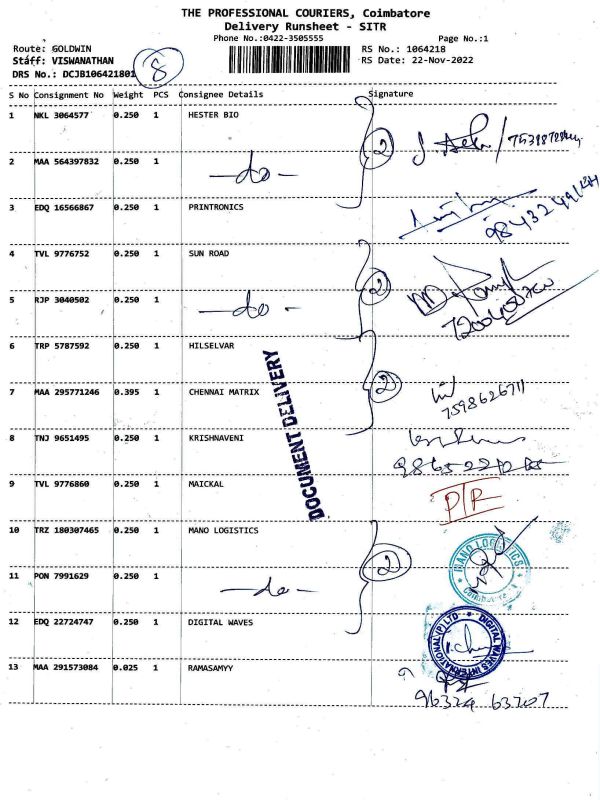 THE PROFESSIONAL COURIERS, Coimbatore
Delivery Runsheet - SITR
Phone No.:0422-3505555 Page No.:1
Route: GOLDWIN RS No.: 1064218
Staff: VISWANATHAN RS Date: 22-Nov-2022
DRS No.: DCJB106421801 8
S No Consignment No Weight PCS Consignee Details Signature
1 NKL 3064577 0.250 1 HESTER BIO 2
2 MAA 564397832 0.250 1 -do-
3 EDQ 16566867 0.250 1 PRINTRONICS
4 TVL 9776752 0.250 1 SUN ROAD 2
5 RJP 3040502 0.250 1 -do-
6 TRP 5787592 0.250 1 HILSELVAR
7 MAA 295771246 0.395 1 CHENNAI MATRIX 2 7598626711
8 TNJ 9651495 0.250 1 KRISHNAVENI
9 TVL 9776860 0.250 1 MAICKAL PTR
DOCUMENT DELIVERY
10 TRZ 180307465 0.250 1 MANO LOGISTICS 2 MANO LOGISTICS Coimbatore
11 PON 7991629 0.250 1 -do-
12 EDQ 22724747 0.250 1 DIGITAL WAVES DIGITAL WAVES INTERNATIONAL (P) LTD
13 MAA 291573084 0.025 1 RAMASAMYY 96324 63707